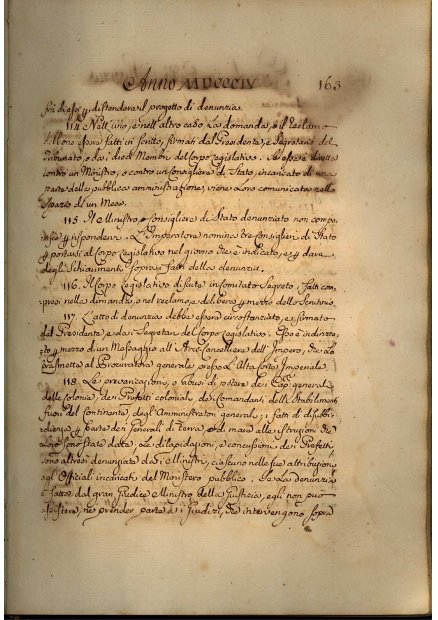 Anno MDCCCIV 163
frà di essi p. distendere il progetto di denunzia.
114. Nell'uno, e nell'altro caso la domanda, o il reclamo
debbono essere fatti in scritto, firmati dal Presidente, e Segretario del
Tribunato, o da i dieci Membri del Corpo Legislativo. Se essi è diretta
contro un Ministro, o contro un Consigliere di Stato, incaricato di una
parte della pubblica amministrazione, viene loro comunicata nello
spazio d'un Mese.
115. Il Ministro, o Consigliere di Stato denunziato non compa-
risce p. rispondervi. L'Imperatore nomina tre Consiglieri di Stato
p. portarsi al Corpo Legislativo nel giorno che è indicato, e p. dare
degli Schiarimenti sopra i fatti della denunzia.
116. Il Corpo Legislativo discute in comitato Segreto i fatti com-
presi nella dimanda, o nel reclamo, e delibera p. mezzo dello Scrutinio.
117. L'atto di denunzia debba essere circostanziato, e firmato
dal Presidente, e da i Segretari del Corpo Legislativo. Esso è indirizza-
to p. mezzo d'un Messaggio all'Arci-Cancelliere dell'Impero, che lo
trasmette al Procuratore generale presso l'Alta Corte Imperiale.
118. Le prevaricazioni, o abusi di potere dei Cap. generali
delle Colonie, dei Prefetti coloniali, dei Comandanti degli Stabilimenti
fuori del Continente, degl'Amministratori generali, i fatti di disubbi-
dienza p. parte dei Generali di terra, o di mare alle istruzioni che
loro sono state date, le dilapidazioni, e concussioni dei Prefetti
sono altresì denunziate da i Ministri, ciascuno nelle sue attribuzioni
agl'Officiali incaricati del Ministero pubblico. Se la denunzia
è fatta dal gran Giudice Ministro della Giustizia, egli non può
assistere, nè prender parte a i Giudizi, che intervengono sopra